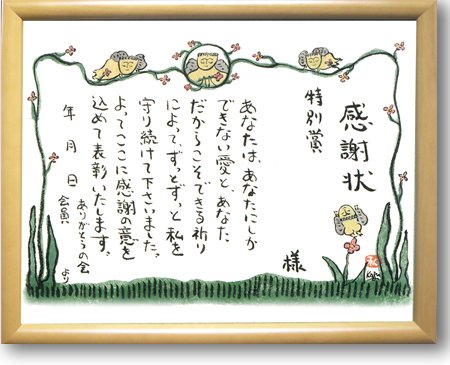 感謝状
特別賞
様
あなたは、あなたにしか
できない愛と、あなた
だからこそできる祈り
によって、ずっとずっと私を
守り続けて下さいました。
よってここに感謝の意を
込めて表彰いたします。
年 月 日
ありがとうの会
会員 より